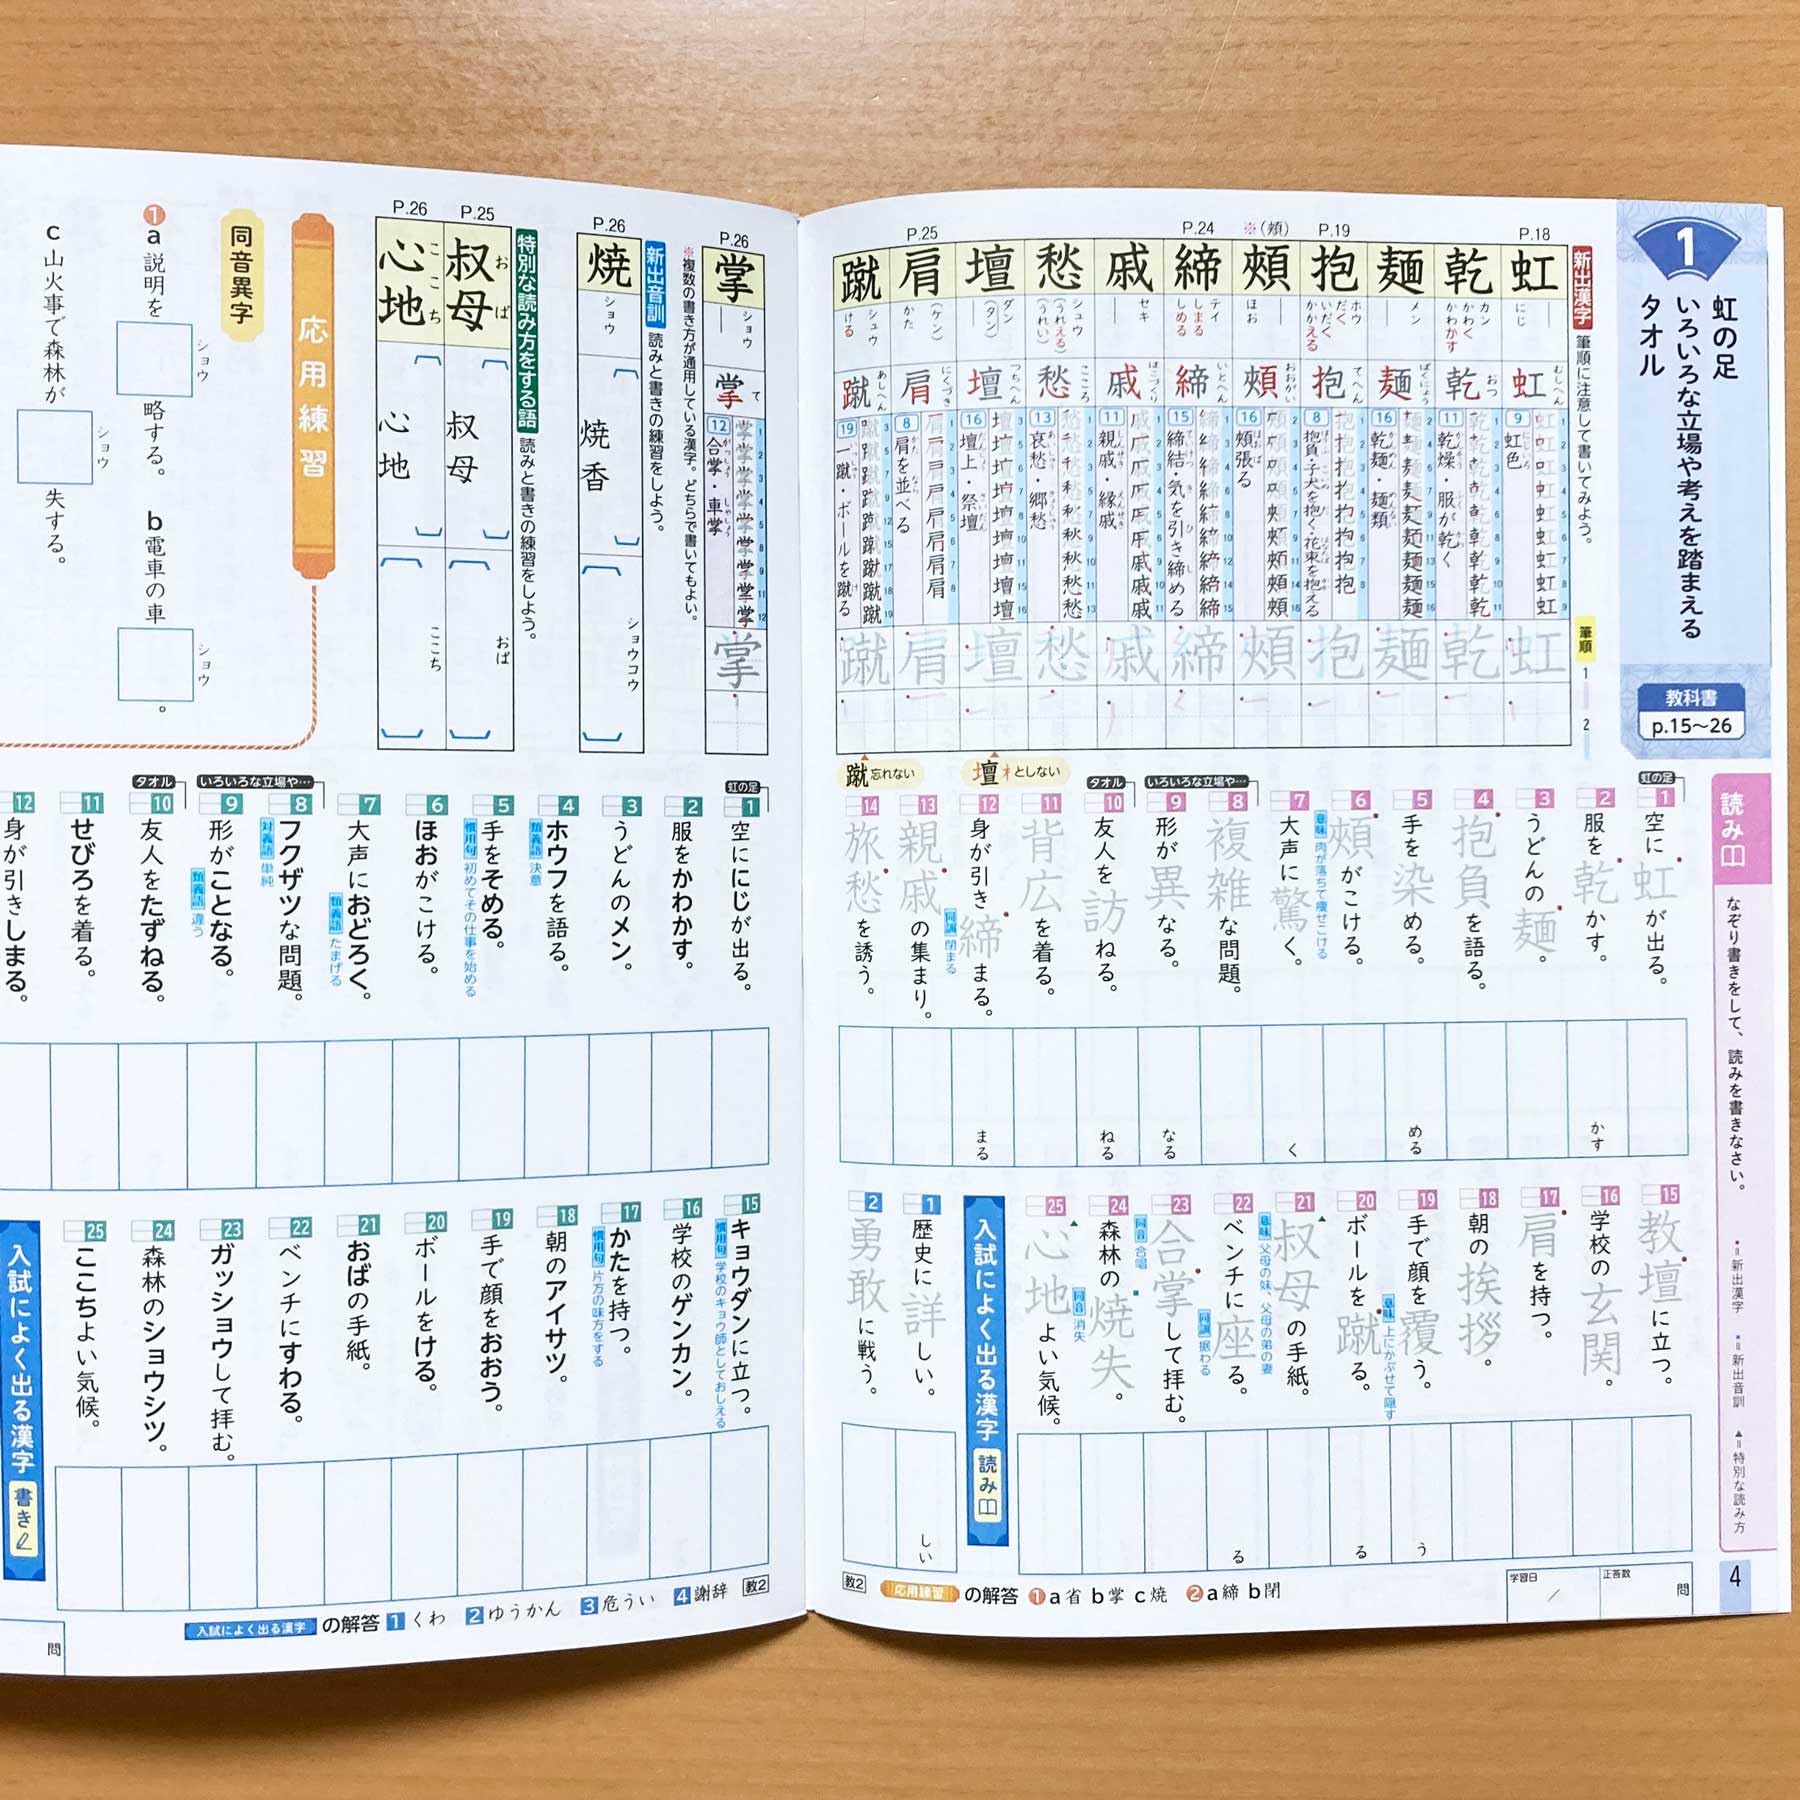 1
虹の足
いろいろな立場や考えを踏まえる
タオル
教科書
p.15～26
新出漢字 筆順に注意して書いてみよう。
筆順 1 2
P.18
虹
にじ
むしへん
9
虹色
乾
カン
かわく
かわかす
おつ
11
乾燥・服が乾く
麺
メン
ばくにょう
16
乾麺・麺類
P.19
抱
ホウ
だく
いだく
かかえる
てへん
8
抱負・子犬を抱く・花束を抱える
※(頬)
頰
ほお
おおがい
16
頰張る
P.24
締
テイ
しまる
しめる
いとへん
15
締結・気を引き締める
戚
セキ
ほこづくり
11
親戚・縁戚
愁
シュウ
(うれえる)
(うれい)
こころ
13
哀愁・郷愁
壇
ダン
(タン)
つちへん
16
壇上・祭壇
P.25
肩
(ケン)
かた
にくづき
8
肩を並べる
蹴
シュウ
ける
あしへん
19
一蹴・ボールを蹴る
蹴 忘れない
壇 扌としない
読み
なぞり書きをして、読みを書きなさい。
●=新出漢字 ■=新出音訓 ▲=特別な読み方
虹の足
1 空に虹が出る。
2 服を乾かす。
かす
3 うどんの麺。
4 抱負を語る。
5 手を染める。
める
6 頰がこける。
意味 肉が落ちて痩せこける
7 大声に驚く。
く
いろいろな立場や…
8 複雑な問題。
9 形が異なる。
なる
タオル
10 友人を訪ねる。
ねる
11 背広を着る。
12 身が引き締まる。
同訓 閉まる
まる
13 親戚の集まり。
14 旅愁を誘う。
15 教壇に立つ。
16 学校の玄関。
17 肩を持つ。
18 朝の挨拶。
19 手で顔を覆う。
意味 上にかぶせて隠す
う
20 ボールを蹴る。
る
21 叔母の手紙。
意味 父母の妹、父母の弟の妻
22 ベンチに座る。
同訓 据わる
る
23 合掌して拝む。
同音 合唱
24 森林の焼失。
同音 消失
25 心地よい気候。
入試によく出る漢字 読み
1 歴史に詳しい。
しい
2 勇敢に戦う。
教2 応用練習 の解答 1 a省 b掌 c焼 2 a締 b閉
学習日 /
正答数 問
4
P.26
掌
ショウ
て
12
合掌・車掌
※複数の書き方が通用している漢字。どちらで書いてもよい。
新出音訓 読みと書きの練習をしよう。
P.26
焼
ショウ
焼香
ショウコウ
特別な読み方をする語 読みと書きの練習をしよう。
P.25
叔母
おば
叔母
おば
P.26
心地
ここち
心地
ここち
応用練習
同音異字
1 a 説明を ショウ 略する。
b 電車の車 ショウ 。
c 山火事で森林が ショウ 失する。
虹の足
1 空ににじが出る。
2 服をかわかす。
3 うどんのメン。
4 ホウフを語る。
類義語 決意
5 手をそめる。
慣用句 初めてその仕事を始める
6 ほおがこける。
7 大声におどろく。
類義語 たまげる
いろいろな立場や…
8 フクザツな問題。
対義語 単純
9 形がことなる。
類義語 違う
タオル
10 友人をたずねる。
11 せびろを着る。
12 身が引きしまる。
15 キョウダンに立つ。
慣用句 学校のキョウ師としておしえる
16 学校のゲンカン。
17 かたを持つ。
慣用句 片方の味方をする
18 朝のアイサツ。
19 手で顔をおおう。
20 ボールをける。
21 おばの手紙。
22 ベンチにすわる。
23 ガッショウして拝む。
24 森林のショウシツ。
25 ここちよい気候。
入試によく出る漢字 書き
入試によく出る漢字 の解答 1 くわ 2 ゆうかん 3 危うい 4 謝辞 教2
問